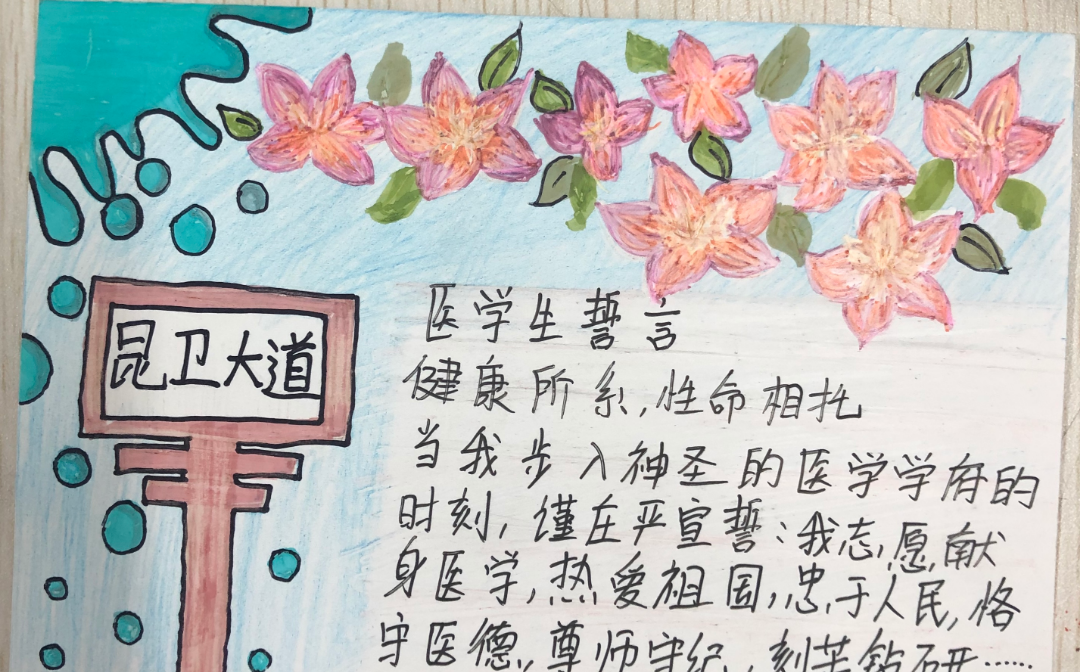 昆卫大道
医学生誓言
健康所系,性命相托
当我步入神圣的医学学府的
时刻,谨在严宣誓:我志愿献
身医学,热爱祖国,忠于人民,恪
守医德,尊师守纪,刻苦钻研……